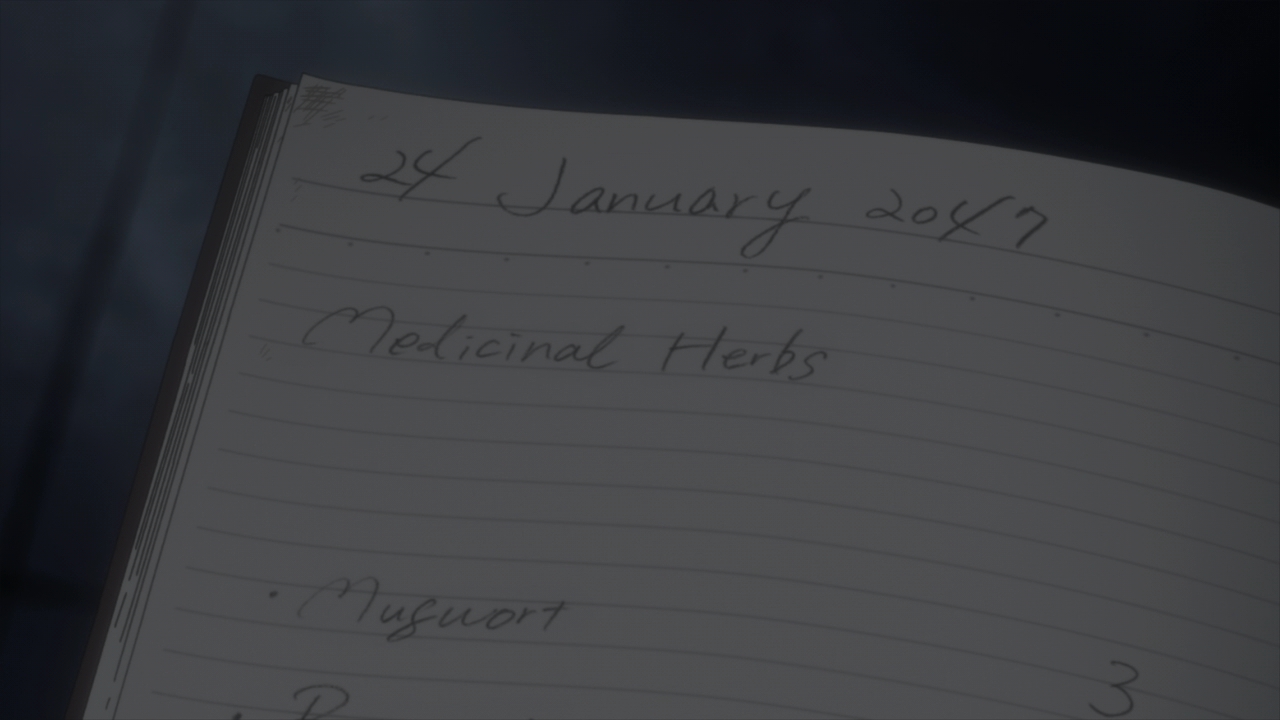 24 January 2047
Medicinal Herbs
• Mugwort
3